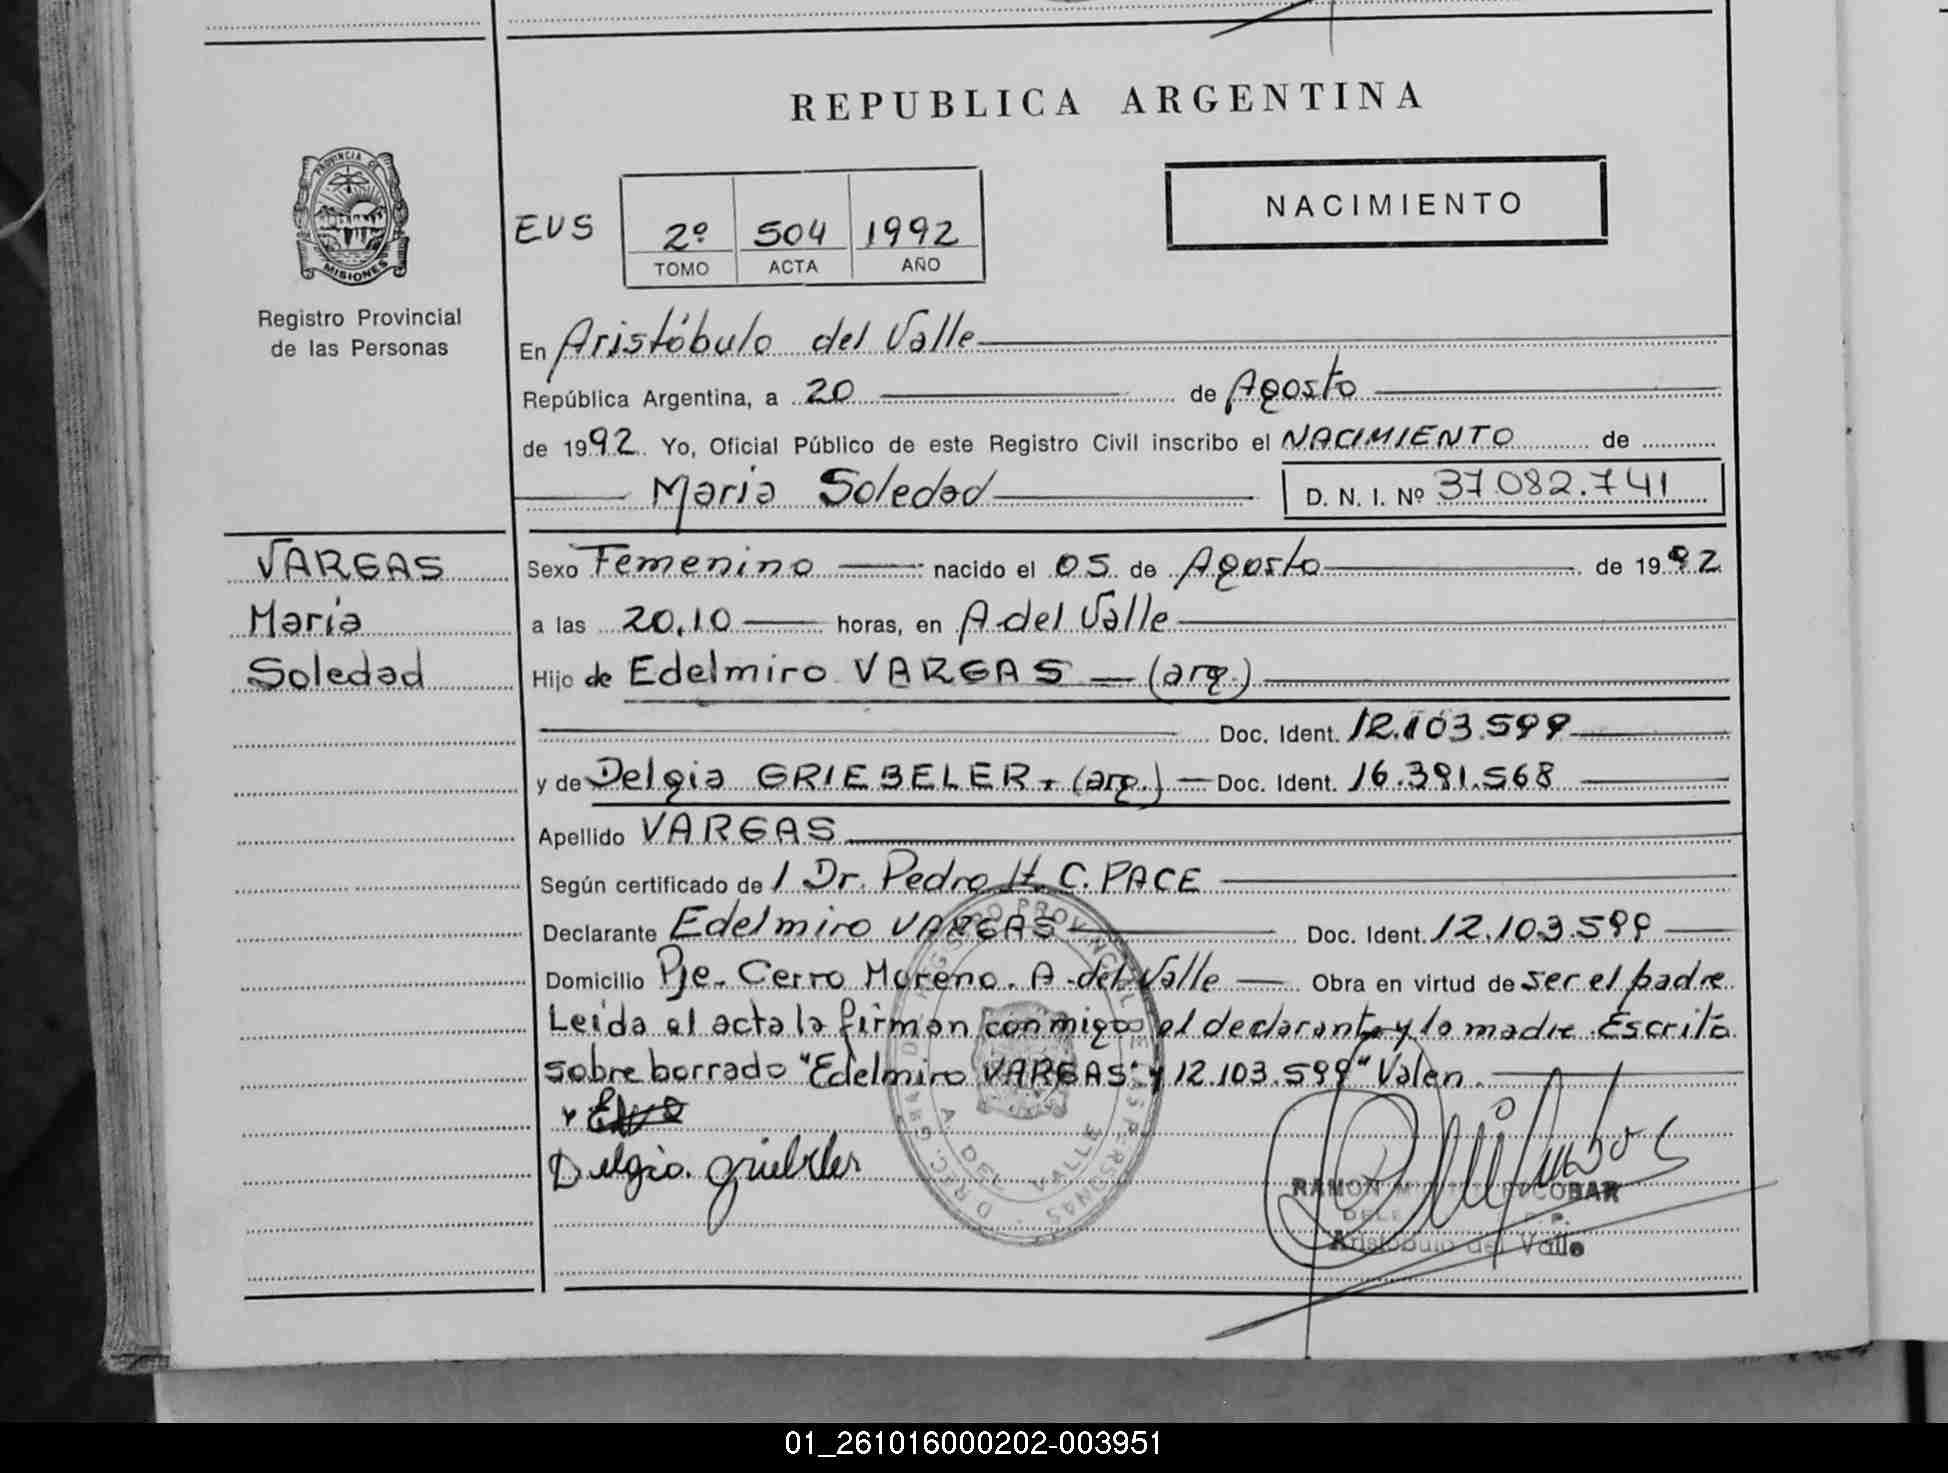 REPUBLICA ARGENTINA
PROVINCIA DE
MISIONES
Registro Provincial
de las Personas
EVS
2º 504 1992
TOMO ACTA AÑO
NACIMIENTO
En Aristóbulo del Valle
República Argentina, a 20 de Agosto
de 1992. Yo, Oficial Público de este Registro Civil inscribo el NACIMIENTO de
Maria Soledad D. N. I. Nº 37.082.741
VARGAS
María
Soledad
Sexo Femenino nacido el 05 de Agosto de 1992
a las 20,10 horas, en A del Valle
Hijo de Edelmiro VARGAS (arg.)
Doc. Ident. 12.103.599
y de Delgia GRIEBELER (arg.) Doc. Ident. 16.391.568
Apellido VARGAS
Según certificado de / Dr. Pedro H. C. PACE
Declarante Edelmiro VARGAS Doc. Ident. 12.103.599
Domicilio Pje. Cerro Moreno. A. del Valle Obra en virtud de ser el padre
Leída el acta la firman conmigo el declarante y la madre. Escrito
sobre borrado "Edelmiro VARGAS" y 12.103.599" Valen.
Delgia. Griebeler
A. DEL VALLE
RAMON ESCOBAR
Aristóbulo del Valle
01_261016000202-003951